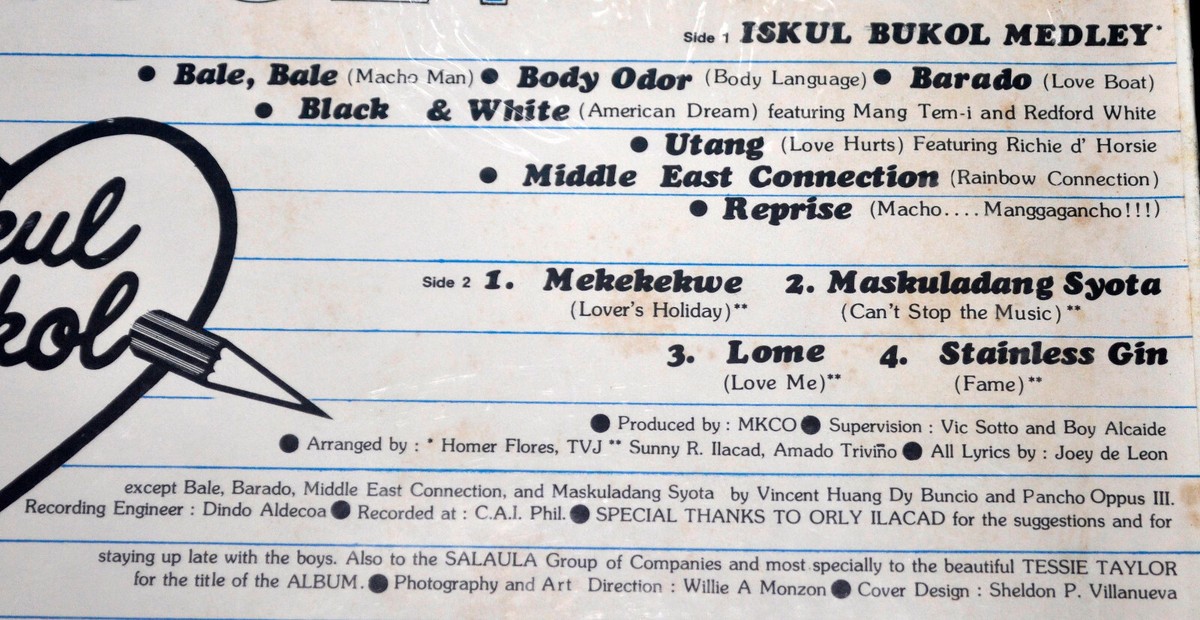 Side 1 ISKUL BUKOL MEDLEY*
● Bale, Bale (Macho Man) ● Body Odor (Body Language) ● Barado (Love Boat)
● Black & White (American Dream) featuring Mang Tem-i and Redford White
● Utang (Love Hurts) Featuring Richie d' Horsie
● Middle East Connection (Rainbow Connection)
● Reprise (Macho.... Manggagancho!!!)
kul
kol
Side 2 1. Mekekekwe 2. Maskuladang Syota
(Lover's Holiday)** (Can't Stop the Music) **
3. Lome 4. Stainless Gin
(Love Me)** (Fame)**
● Produced by : MKCO ● Supervision : Vic Sotto and Boy Alcaide
● Arranged by : * Homer Flores, TVJ ** Sunny R. Ilacad, Amado Triviño ● All Lyrics by : Joey de Leon
except Bale, Barado, Middle East Connection, and Maskuladang Syota by Vincent Huang Dy Buncio and Pancho Oppus III.
Recording Engineer : Dindo Aldecoa ● Recorded at : C.A.I. Phil. ● SPECIAL THANKS TO ORLY ILACAD for the suggestions and for
staying up late with the boys. Also to the SALAULA Group of Companies and most specially to the beautiful TESSIE TAYLOR
for the title of the ALBUM. ● Photography and Art Direction : Willie A Monzon ● Cover Design : Sheldon P. Villanueva